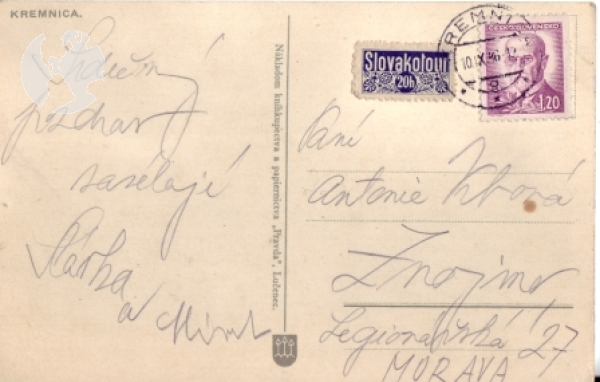 KREMNICA.
Srdečný
pozdrav
zasílají
Slávka
a Mirek
Nákladom kníhkupectva a papiernictva „Pravda", Lučenec.
Slovakotour
20h
KREMNICA
10.IX.46
ČESKOSLOVENSKO
1,20
Paní
Antonie
Znojmo
Legionářská 27
MORAVA